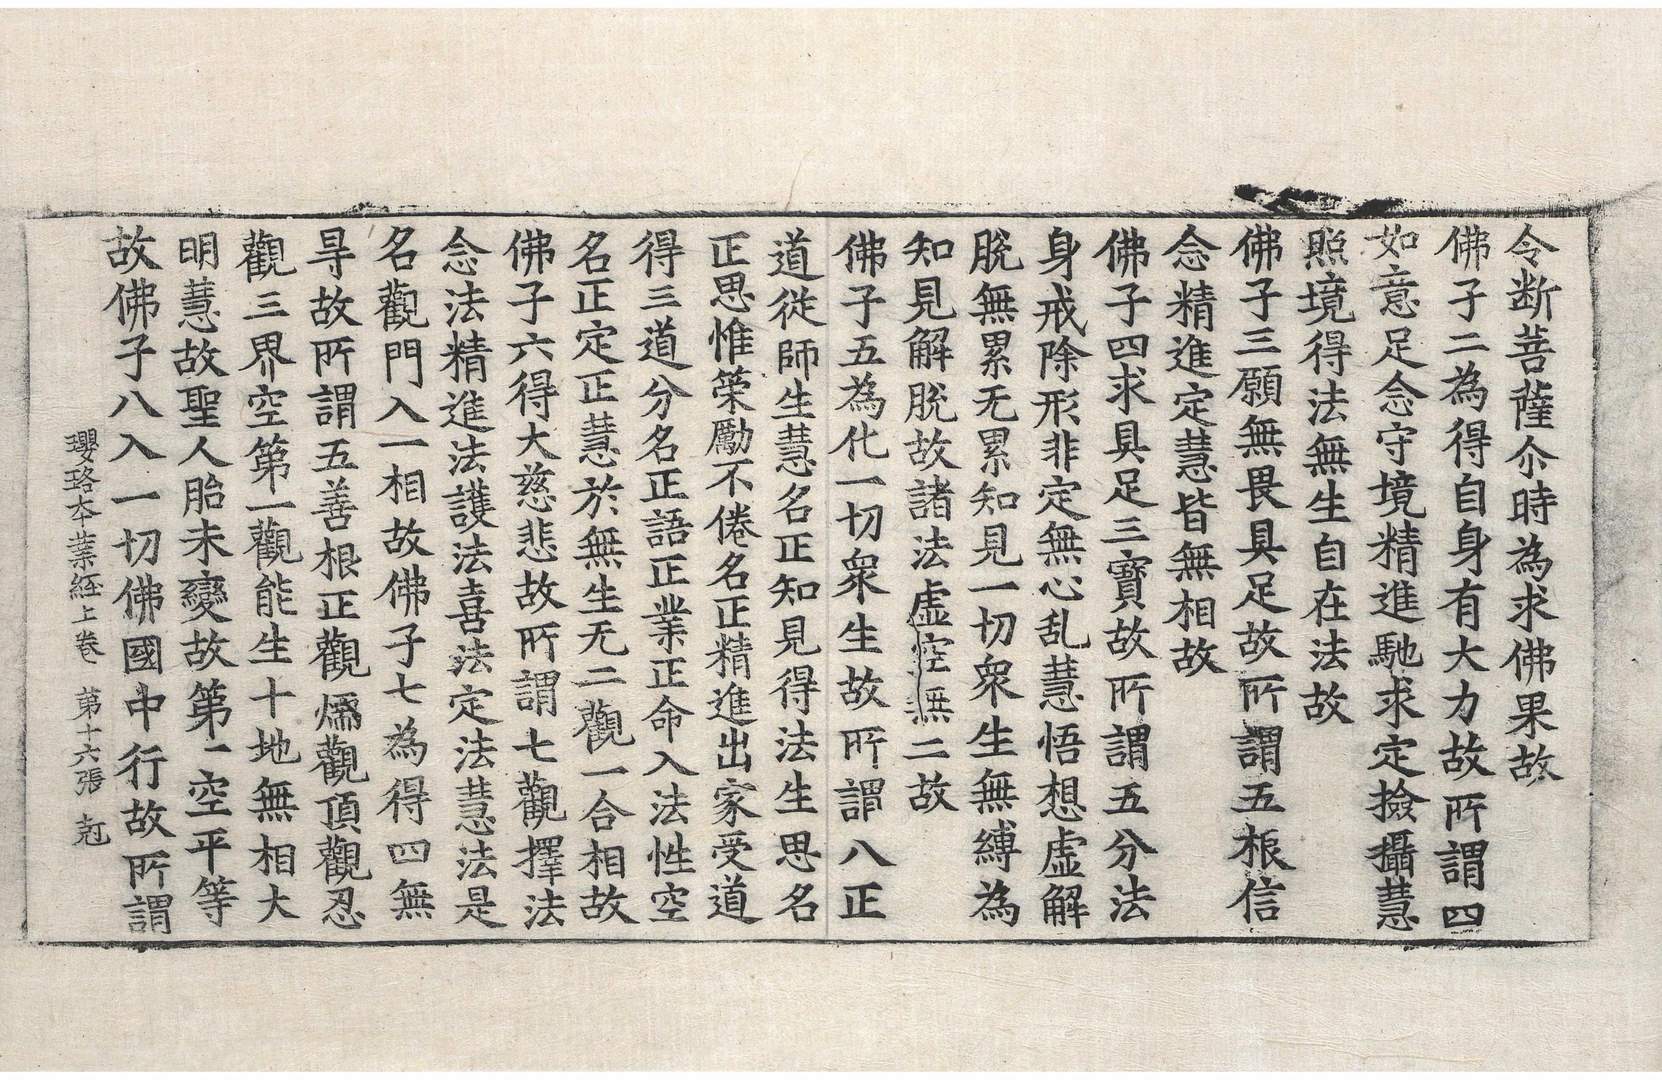 令断菩薩尒時為求佛果故
佛子二為得自身有大力故所謂四
如意足念守境精進馳求定撿攝慧
照境得法無生自在法故
佛子三願無畏具足故所謂五根信
念精進定慧皆無相故
佛子四求具足三寶故所謂五分法
身戒除形非定無心乱慧悟想虛解
脫無累无累知見一切衆生無縛為
知見解脫故諸法虛空無二故
佛子五為化一切衆生故所謂八正
道從師生慧名正知見得法生思名
正思惟榮勵不倦名正精進出家受道
得三道分名正語正業正命入法性空
名正定正慧於無生无二觀一合相故
佛子六得大慈悲故所謂七觀擇法
念法精進法護法喜法定法慧法是
名觀門入一相故佛子七為得四無
㝵故所謂五善根正觀煗觀頂觀忍
觀三界空第一觀能生十地無相大
明慧故聖人胎未變故第一空平等
故佛子八入一切佛國中行故所謂
瓔珞本業經上卷 第十六張